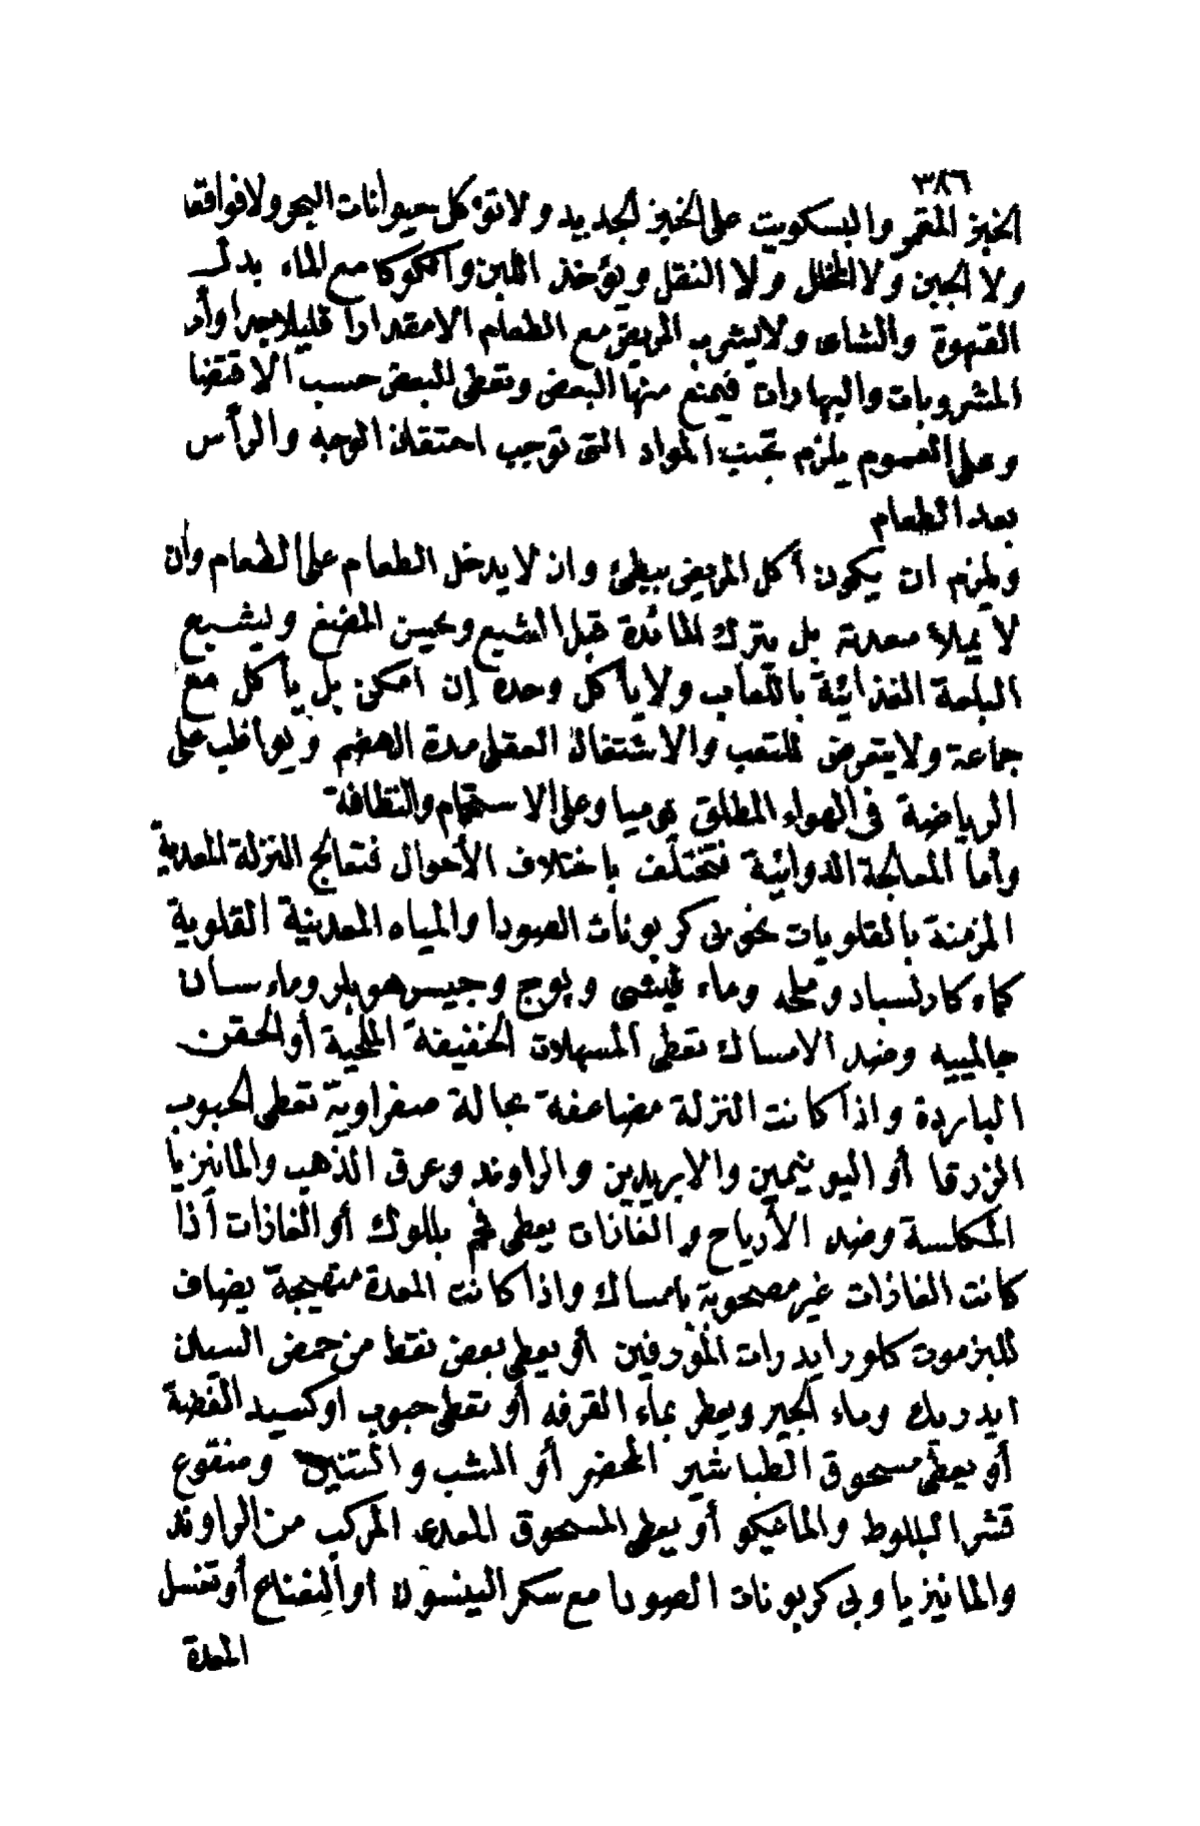 ٣٨٦
الخبز المقمر والبسكويت على الخبز الجديد ولا تؤكل حيوانات البحر ولا فواقعا
ولا الجبن ولا المخلل ولا النقل ويؤخذ اللبن والكوكا مع الماء بدل
القهوة والشاى ولا يشرب المريض مع الطعام الا مقدارا قليلا جدا وأما
المشروبات والبهارات فيمنع منها البعض وتعطى للبعض حسب الاقتضا
وعلى العموم يلزم تجنب المواد التى توجب احتقان الوجه والرأس
بعد الطعام
ويلزم ان يكون أكل المريض ببطئ وان لا يدخل الطعام على الطعام وان
لا يملأ معدته بل يترك المائدة قبل الشبع ويحسن المضغ وليشبع
البلعة الغذائية باللعاب ولا يأكل وحده إن امكن بل يأكل مع
جماعة ولا يتعرض للتعب والاشتغال العقلى مدة الهضم ويواظب على
الرياضة فى الهواء المطلق يوميا وعلى الاستحمام والنظافة
وأما المعالجة الدوائية فتختلف باختلاف الأحوال فتعالج النزلة المعدية
المزمنة بالقلويات نحو بى كربونات الصودا والمياه المعدنية القلوية
كماء كارلسباد وملحه وماء فيشى وپوج وجيسهوبلر وماء سان
جالمييه وضد الامساك تعطى المسهلات الخفيفة الملحية أو الحقن
الباردة واذا كانت النزلة مضاعفة بحالة صفراوية تعطى الحبوب
الزرقا أو اليونيمين والايريدين والراوند وعرق الذهب والمانيزيا
المكلسة وضد الأرياح والغازات يعطى فحم بللوك أو الغازات أذا
كانت الغازات غير مصحوبة بامساك واذا كانت المعدة متهيجة يضاف
للبزموت كلورايدرات المؤرفين أو يعطى بعض نقط من حمض السيان
ايدريك وماء الجير ويعطر بماء القرفه أو تعطى حبوب اوكسيد الفضة
أو يعطى مسحوق الطباشير المحضر أو الشب والتنين ومنقوع
قشر البلوط والماتيكو أو يعطى المسحوق المعدى المركب من الراوند
والمانيزيا وبى كربونات الصودا مع سكر الينسون او النعناع أو تغسل
المعدة